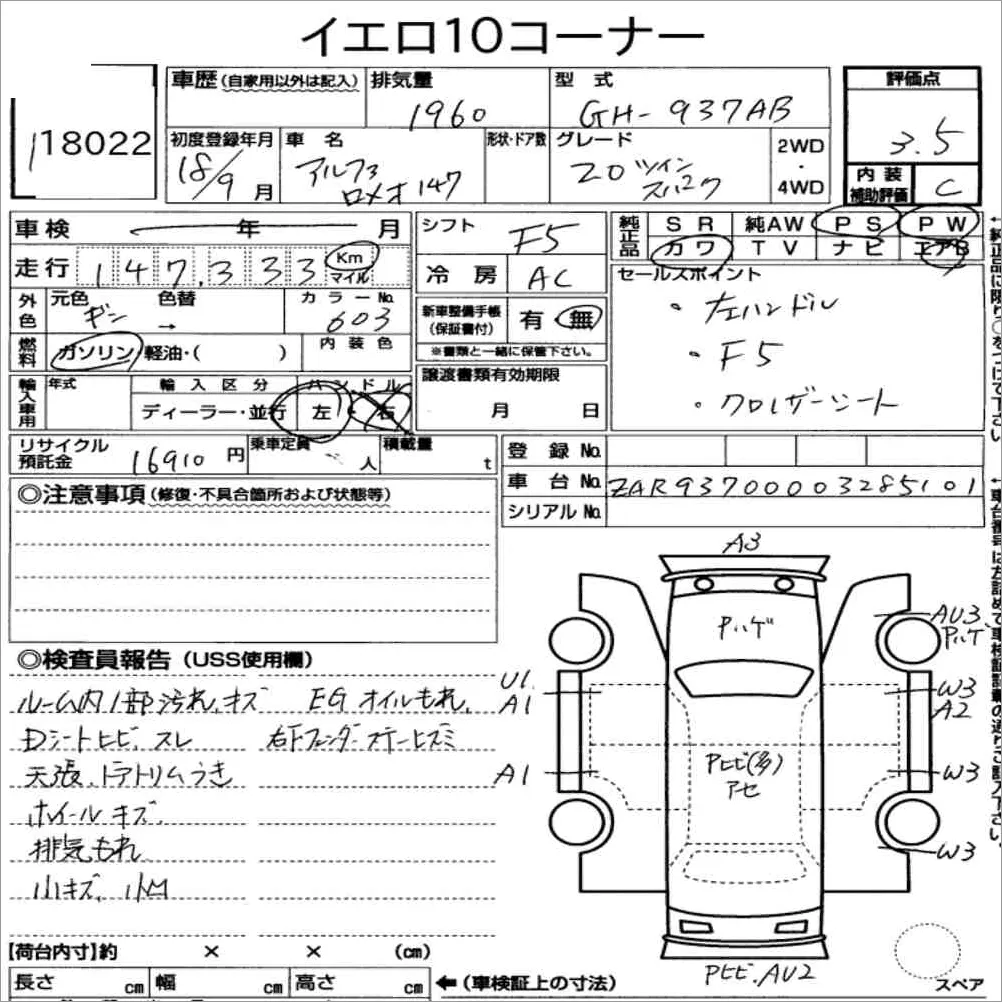 イエロ10コーナー
18022
車歴(自家用以外は記入)
排気量
1960
型式
GH-937AB
評価点
3.5
初度登録年月
18/9月
車名
アルファ
ロメオ147
形状・ドア数
グレード
2.0ツイン
スパーク
2WD
・
4WD
内装
補助評価
C
車検 年 月
シフト
F5
純正品
SR 純AW PS PW
カワ TV ナビ エアB
走行 147,333 Km
マイル
冷房
AC
セールスポイント
・左ハンドル
・F5
・クロレザーシート
外色
元色
ギン
色替
→
カラーNo.
603
新車整備手帳
(保証書付)
有 無
※書類と一緒に保管下さい。
燃料
ガソリン・軽油・( )
内装色
輸入車用
年式
輸入区分
ディーラー・並行
ハンドル
左・右
譲渡書類有効期限
月 日
リサイクル
預託金
16910円
乗車定員
人
積載量
t
登録No.
車台No.
ZAR93700003285101
シリアルNo.
◎注意事項(修復・不具合箇所および状態等)
◎検査員報告(USS使用欄)
ルーム内1部汚れ、キズ
Dシートヒビ、スレ
天張、トラトリムうき
ホイールキズ
排気もれ
小キズ、小凹
EGオイルもれ、
右Fフェンダーステーヒズミ
A3
Pハゲ
AU3
Pハゲ
U1
A1
W3
A2
A1
Pヒビ(多)
アセ
W3
W3
Pヒビ、AU2
スペア
【荷台内寸】約 × × (cm)
長さ cm 幅 cm 高さ cm
←(車検証上の寸法)